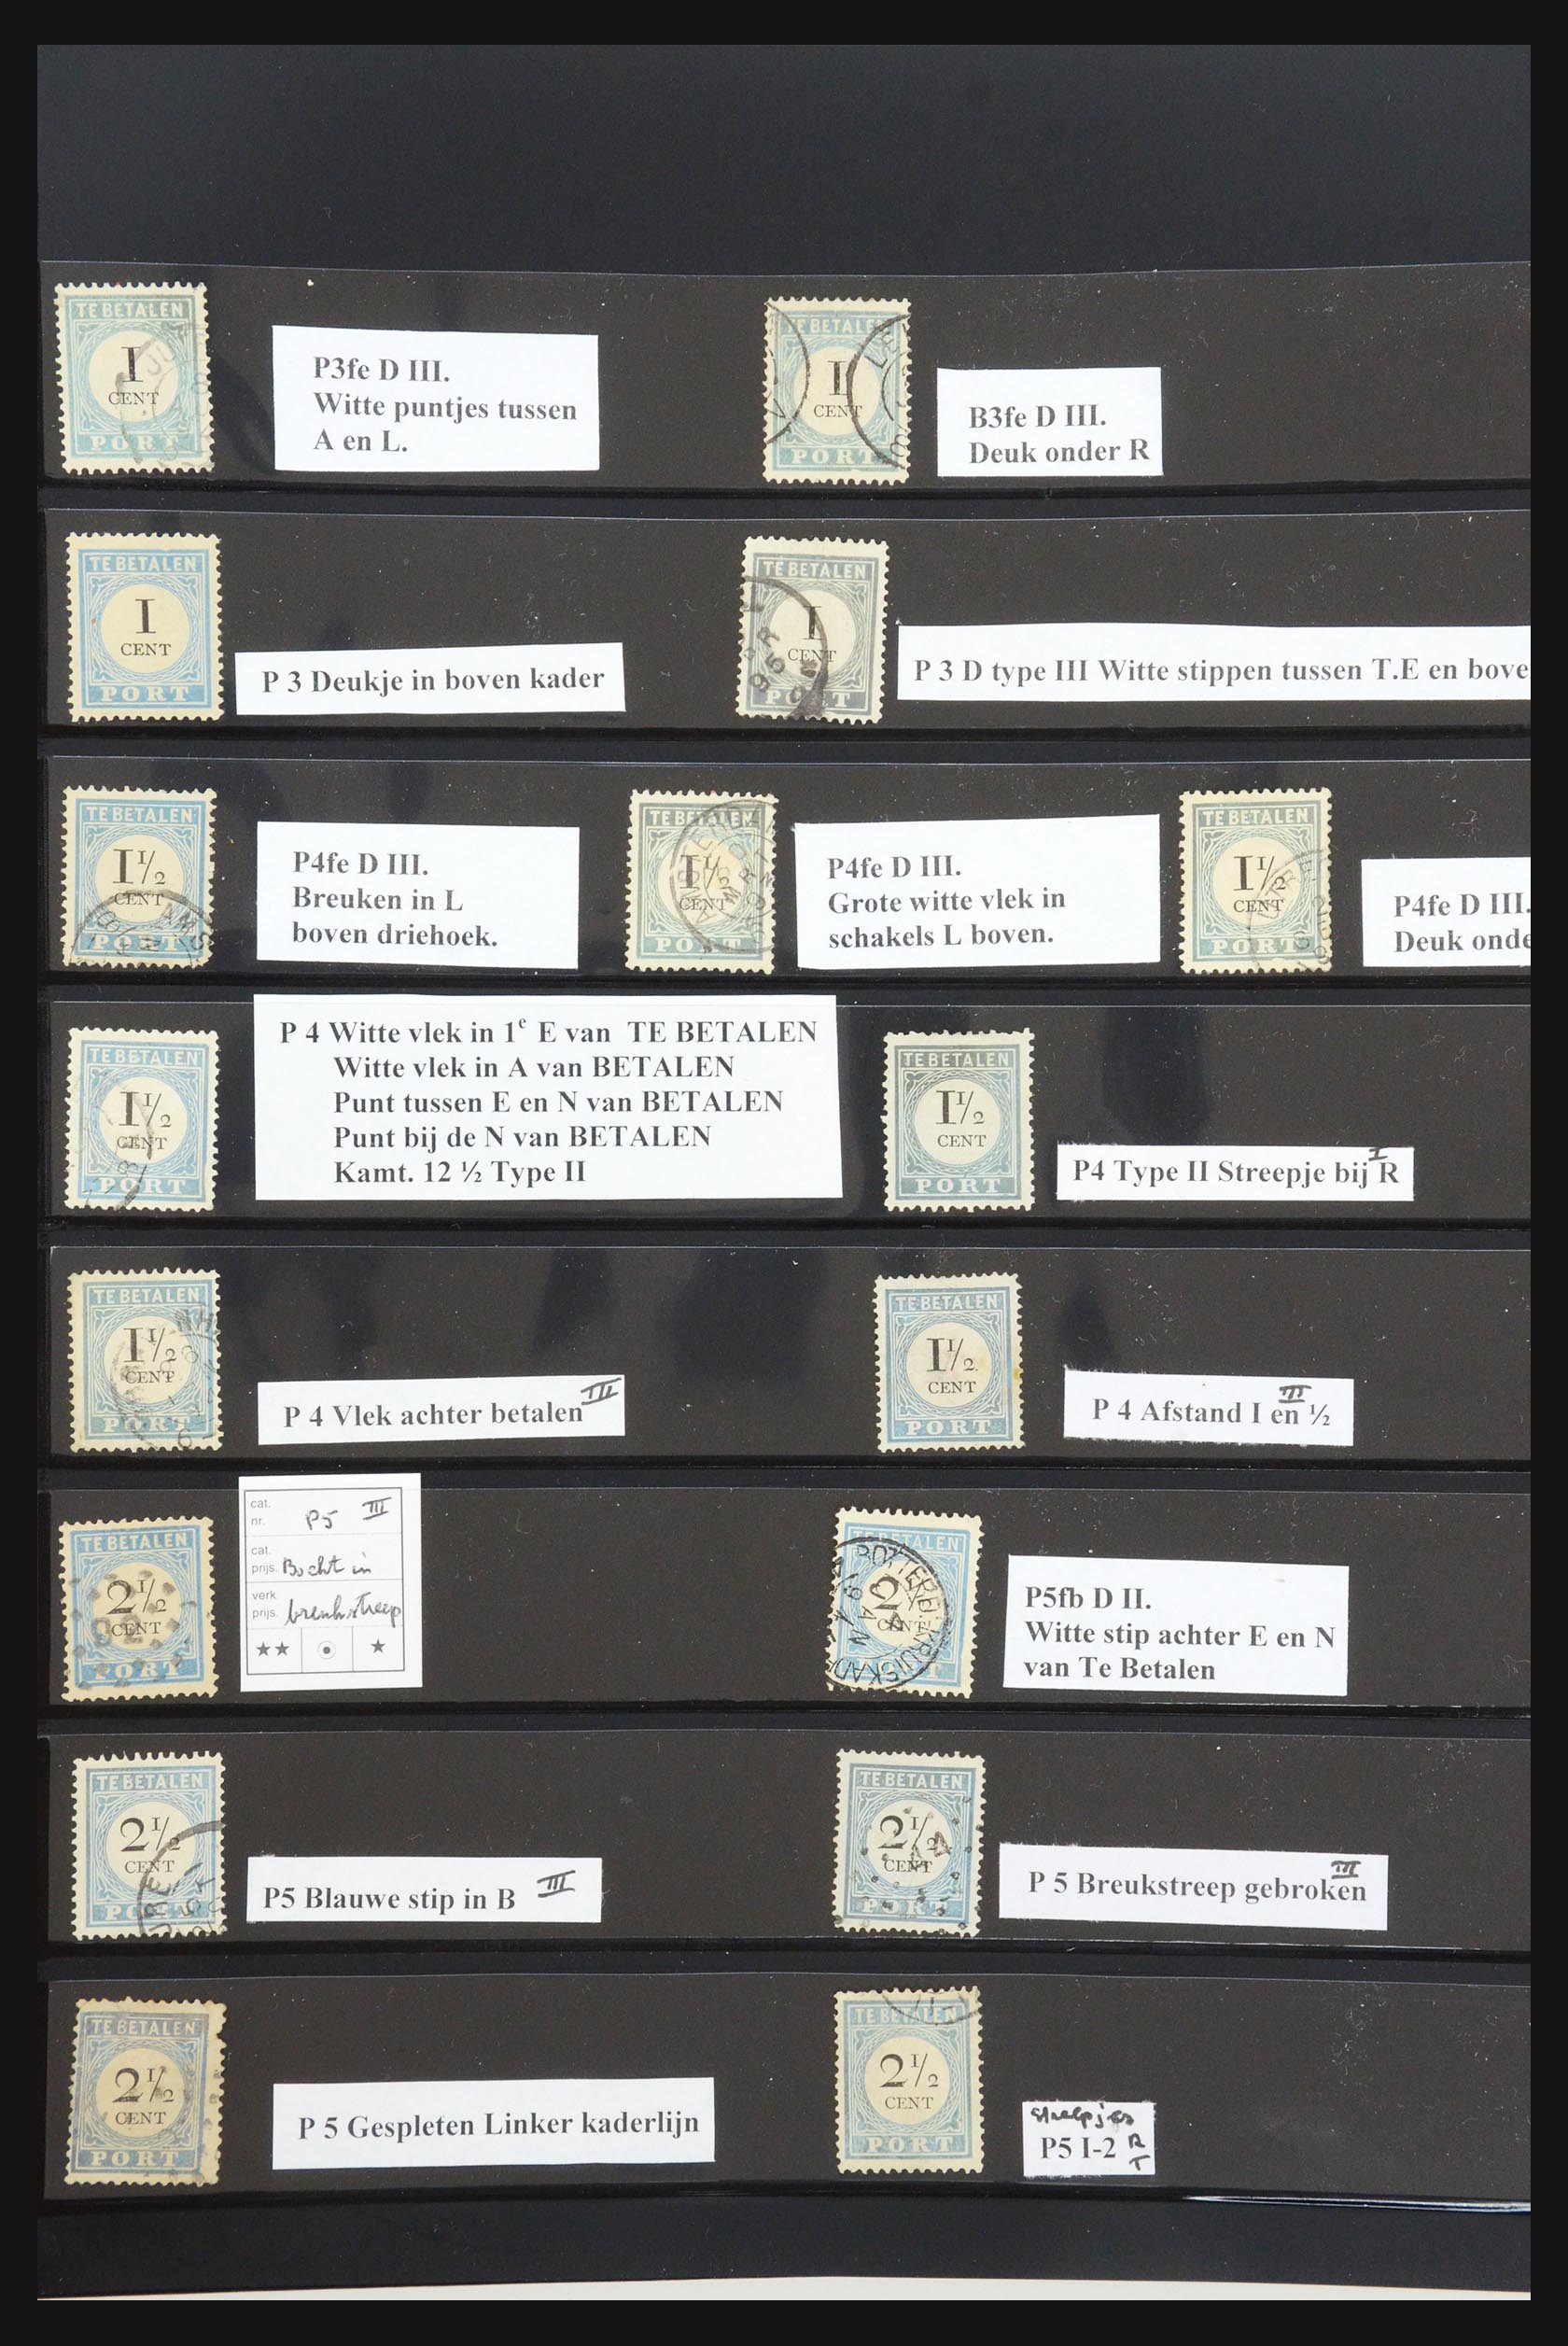 TE BETALEN
1
CENT
PORT
P3fe D III.
Witte puntjes tussen
A en L.
TE BETALEN
1
CENT
PORT
B3fe D III.
Deuk onder R
TE BETALEN
1
CENT
PORT
P 3 Deukje in boven kader
TE BETALEN
1
CENT
PORT
P 3 D type III Witte stippen tussen T.E en bove
TE BETALEN
1 1/2
CENT
PORT
P4fe D III.
Breuken in L
boven driehoek.
TE BETALEN
1 1/2
CENT
PORT
P4fe D III.
Grote witte vlek in
schakels L boven.
TE BETALEN
1 1/2
CENT
PORT
P4fe D III.
Deuk onde
TE BETALEN
1 1/2
CENT
PORT
P 4 Witte vlek in 1e E van TE BETALEN
Witte vlek in A van BETALEN
Punt tussen E en N van BETALEN
Punt bij de N van BETALEN
Kamt. 12 ½ Type II
TE BETALEN
1 1/2
CENT
PORT
P4 Type II Streepje bij R
I
TE BETALEN
1 1/2
CENT
PORT
P 4 Vlek achter betalen III
TE BETALEN
1 1/2
CENT
PORT
III
P 4 Afstand I en ½
TE BETALEN
2 1/2
CENT
PORT
cat.
nr. P5 III
cat.
prijs. Bocht in
verk
prijs. breukstreep
★★ ★
TE BETALEN
2 1/2
CENT
P5fb D II.
Witte stip achter E en N
van Te Betalen
TE BETALEN
2 1/2
CENT
PORT
P5 Blauwe stip in B III
TE BETALEN
2 1/2
CENT
PORT
III
P 5 Breukstreep gebroken
TE BETALEN
2 1/2
CENT
PORT
P 5 Gespleten Linker kaderlijn
TE BETALEN
2 1/2
CENT
PORT
streepjes
P5 I-2 R
T